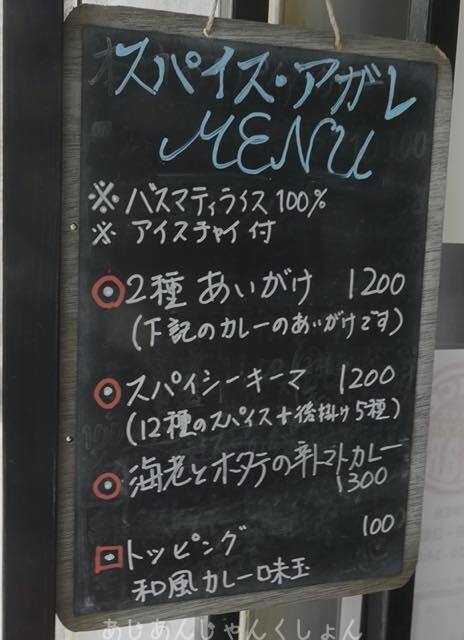 スパイス・アガレ
MENU
※ バスマティライス 100%
※ アイスチャイ付
◎ 2種 あいがけ 1200
(下記のカレーのあいがけです)
◎ スパイシーキーマ 1200
(12種のスパイス+後掛け5種)
◎ 海老とホタテの辛トマトカレー
1300
トッピング 100
和風カレー味玉
あじあんじゃんくしょん